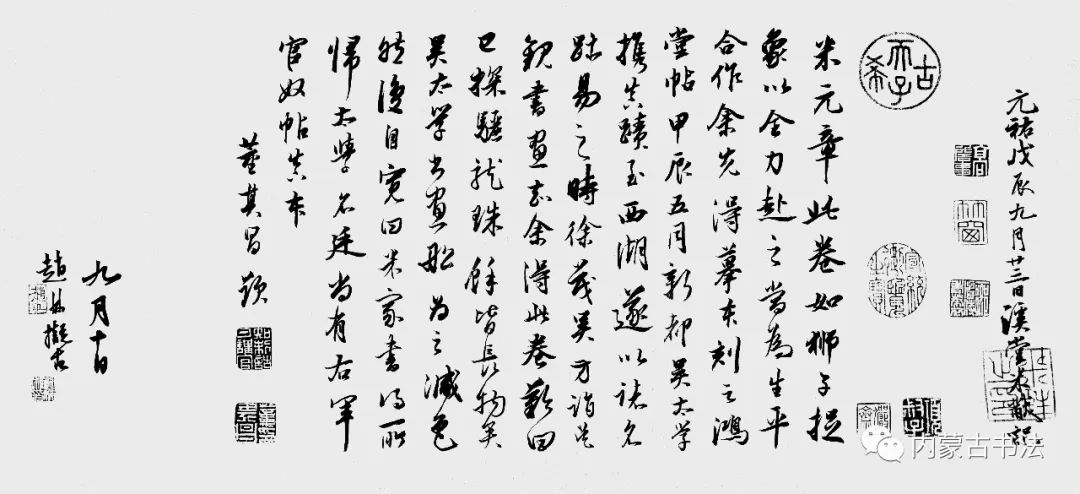 元祐戊辰九月廿三日溪堂米黻記
古希天子
米元章此卷如獅子捉
象以全力赴之當為生平
合作余先得摹本刻之鴻
堂帖甲辰五月新都吳太學
攜真蹟至西湖遂以諸名
跡易之時徐茂吳方詣吳
觀書畫知余得此卷歎曰
已探驪龍珠餘皆長物矣
吳太學書畫船為之減色
然後自寬曰米家書得所
歸太學名廷尚有右軍
官奴帖真本
董其昌題
九月十日
趙擬古
内蒙古书法